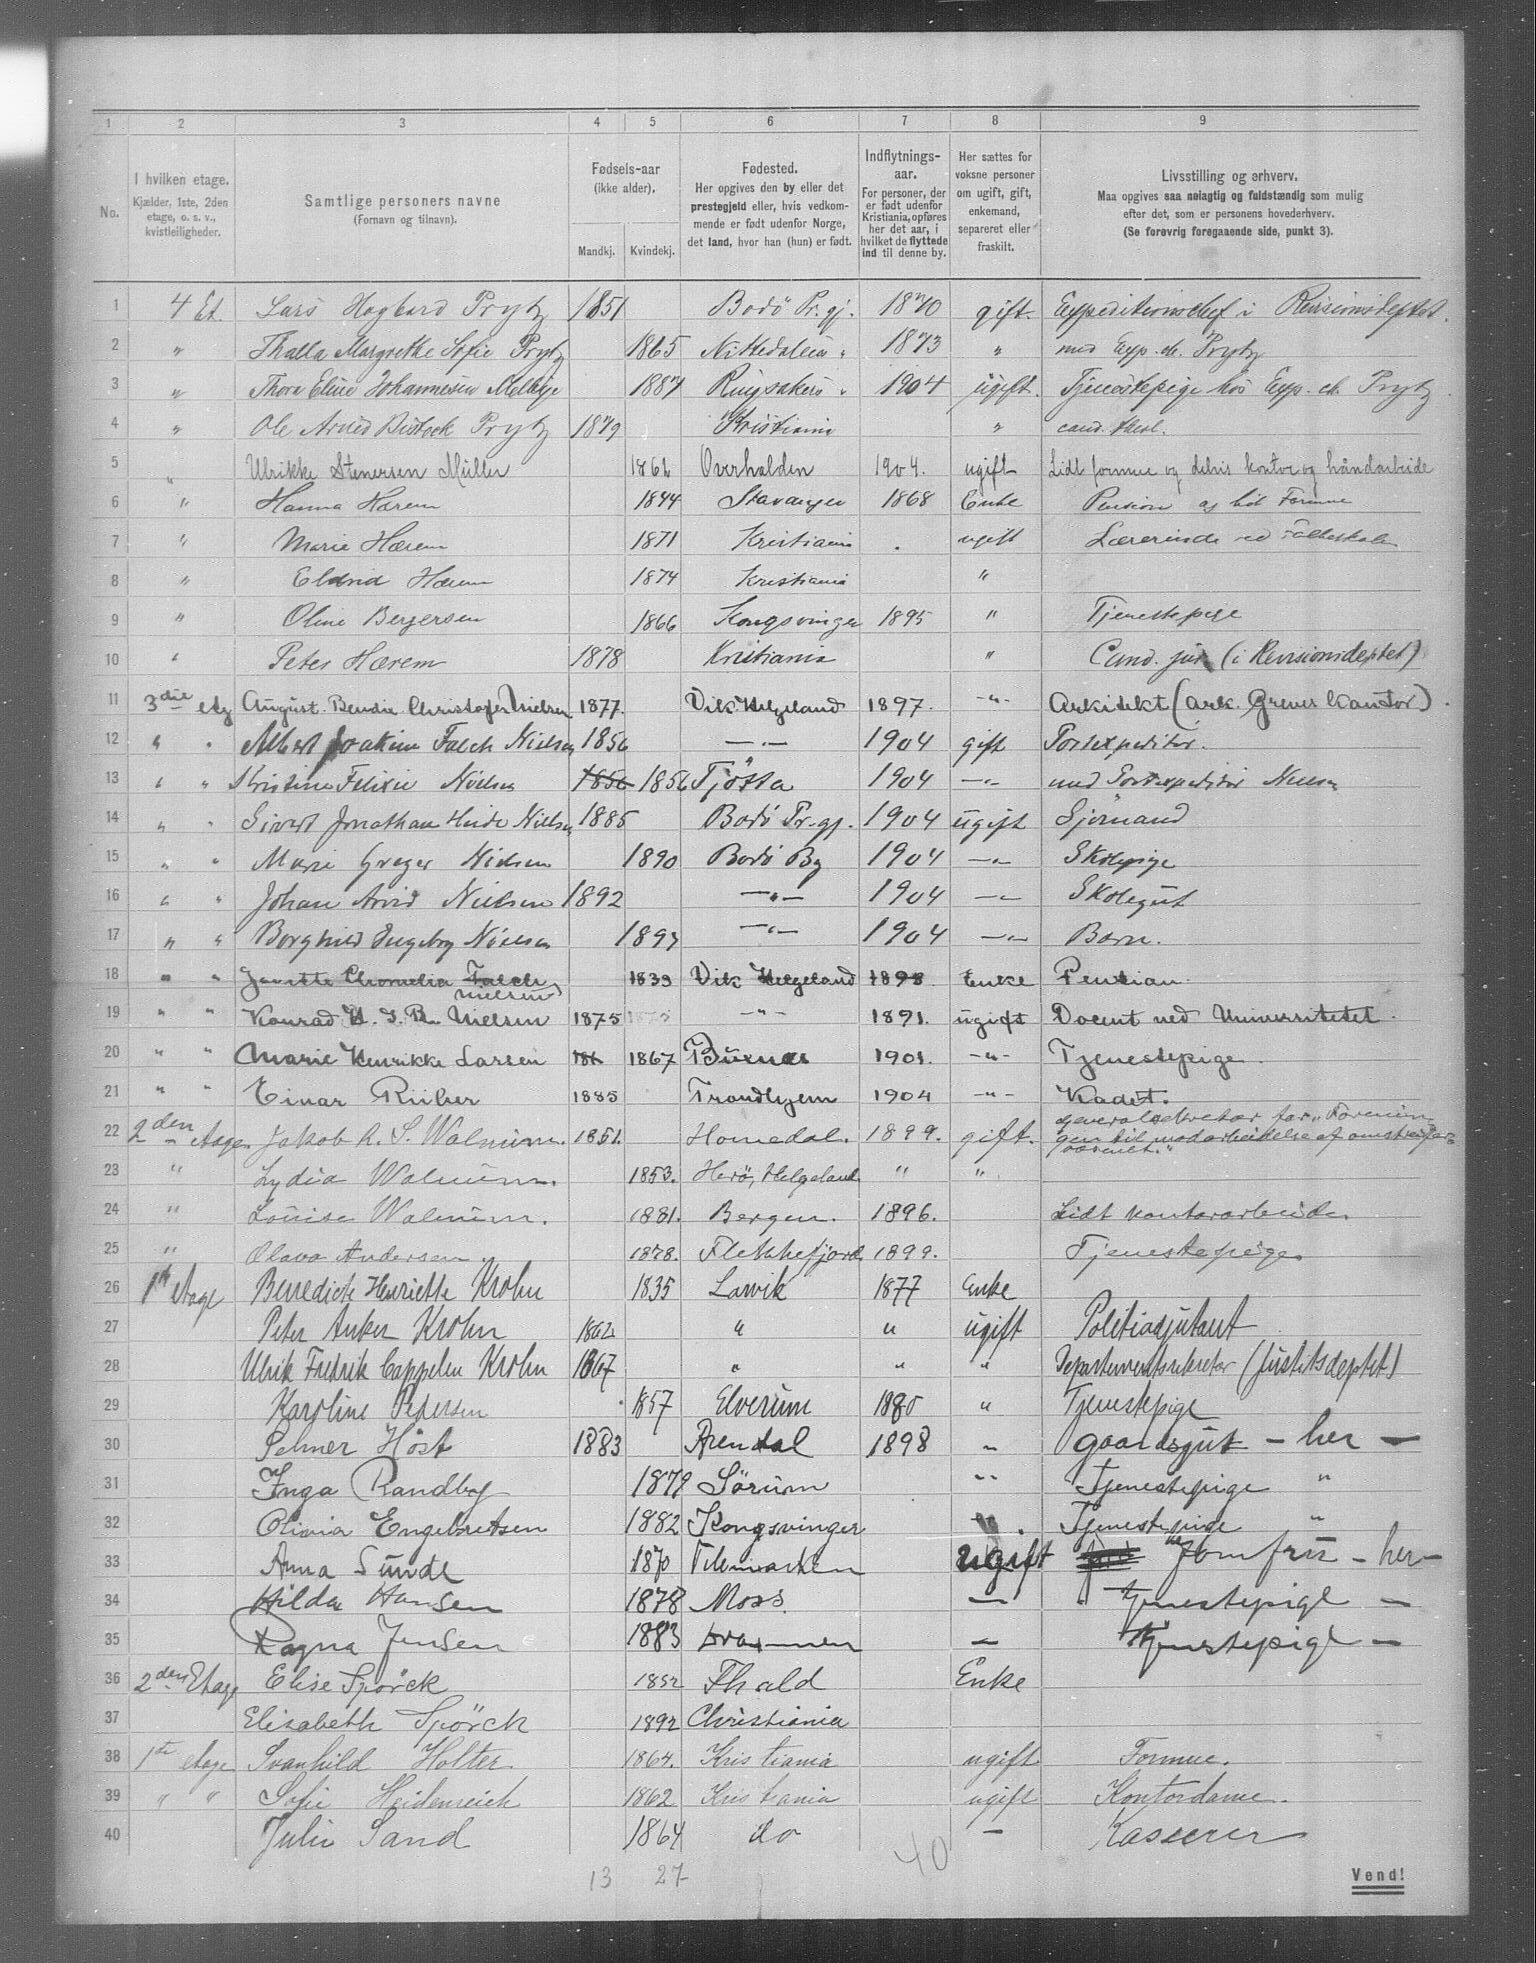 1 2 3 4 5 6 7 8 9
No.
I hvilken etage.
Kjælder, 1ste, 2den
etage, o. s. v.,
kvistleiligheder.
Samtlige personers navne
(Fornavn og tilnavn).
Fødsels-aar
(ikke alder).
Mandkj. Kvindekj.
Fødested.
Her opgives den by eller det
prestegjeld eller, hvis vedkom-
mende er født udenfor Norge,
det land, hvor han (hun) er født.
Indflytnings-
aar.
For personer, der
er født udenfor
Kristiania, opføres
her det aar, i
hvilket de flyttede
ind til denne by.
Her sættes for
voksne personer
om ugift, gift,
enkemand,
separeret eller
fraskilt.
Livsstilling og erhverv.
Maa opgives saa nøiagtig og fuldstændig som mulig
efter det, som er personens hovederhverv.
(Se forøvrig foregaaende side, punkt 3).
1 4 Et. Lars Hagbard Prytz 1851 Bodö Pr.gj. 1870 gift. Expeditionschef i Revisionsdeptet.
2 " Thalla Margrethe Sofie Prytz 1865 Nittedalens " 1873 " med Exp. ch. Prytz
3 " Thora Eline Johannesen Melbye 1887 Ringsakers " 1904 ugift. Tjenestepige hos Exp. ch. Prytz
4 " Ole Arvid Prytz 1879 Kristiania " cand. theol.
5 " Ulrikke Stenersen Müller 1862 Overhalden 1904. ugift Lidt formue og delvis kontor og håndarbeide
6 " Hanna Hærem 1844 Stavanger 1868 Enke Pension og lidt Formue
7 " Marie Hærem 1871 Kristiania . ugift Lærerinde ved Folkeskolen
8 " Hærem 1874 Kristiania "
9 " Oline Bergersen 1866 Kongsvinger 1895 " Tjenestepige
10 " Peter Hærem 1878 Kristiania " Cand. jur (i Revisionsdeptet)
11 3die etg August Bendix Christofer Nielsen 1877. Vik Helgeland 1897. -"- Arkitekt (ark. Greves kantor).
12 " " Albert Joakim Falch Nielsen 1856 -"- 1904 gift Postexpeditör.
13 " " Kristine Felixie Nielsen 1856 1856 Tjötta 1904 -"- med Postexpeditör Nielsen
14 " " Sivert Jonathan Hinde Nielsen 1885 Bodö Pr.gj. 1904 ugift Sjömand
15 " " Marie Greger Nielsen 1890 Bodö By 1904 -"- Skolepige
16 " " Johan Arvid Nielsen 1892 -"- 1904 -"- Skolegut
17 " " Borghild Ingeborg Nielsen 1897 -"- 1904 -"- Barn.
18 " " Falch 1833 Vik Helgeland 1898 Enke Pention
Nielsen
19 " " Konrad H. I. R. Nielsen 1875 1875 -"- 1891. ugift Docent ved Universitetet.
20 " " Marie Henrikke Larsen 186 1867 1901. -"- Tjenestepige.
21 " " Einar Riiber 1885 Trondhjem 1904 -"- Kadet.
22 2den etage. Jakob R. S. Walnum. 1851. Homedal. 1899. gift. generalsekretær for "Forenin-
gen til modarbeidelse af omstreifer-
væsenet."
23 " Lydia Walnum. 1853. Herö, Helgeland " "
24 " Louise Walnum. 1881. Bergen. 1896. Lidt kontorarbeide
25 " Olava Andersen 1878. Flekkefjord 1899. Tjenestepige
26 1ste etage Benedicte Henriette Krohn 1835 Larvik 1877 Enke
27 Peter Anker Krohn 1862 " " ugift Politiadjutant
28 Ulrik Fredrik Cappelen Krohn 1867 " " " Departementssekretær (Justitsdeptet)
29 Karoline Pedersen 1857 Elverum 1880 " Tjenestepige
30 Pelmer Höst 1883 Arendal 1898 " gaardsgut - her -
31 Inga Randby 1879 Sörum " Tjenestepige "
32 Olivia Engebretsen 1882 Kongsvinger " . Tjenestepige "
33 Anna Sunde 1870 Telemarken ugift Jomfru - her -
34 Hilda Hansen 1878 Moss. - tjenestepige -
35 Ragna Jensen 1883 Drammen - tjenestepige -
36 2den Etage Elise Spörck 1852 Enke
37 Elisabeth Spörck 1892 Christiania
38 1ste etage Svanhild Holter 1864. Kristiania ugift Formue.
39 " " Sofie Heidenreich 1862 Kristiania ugift Kontordame.
40 Julie Sand 1864 do - Kasserer
13 27 40
Vend!